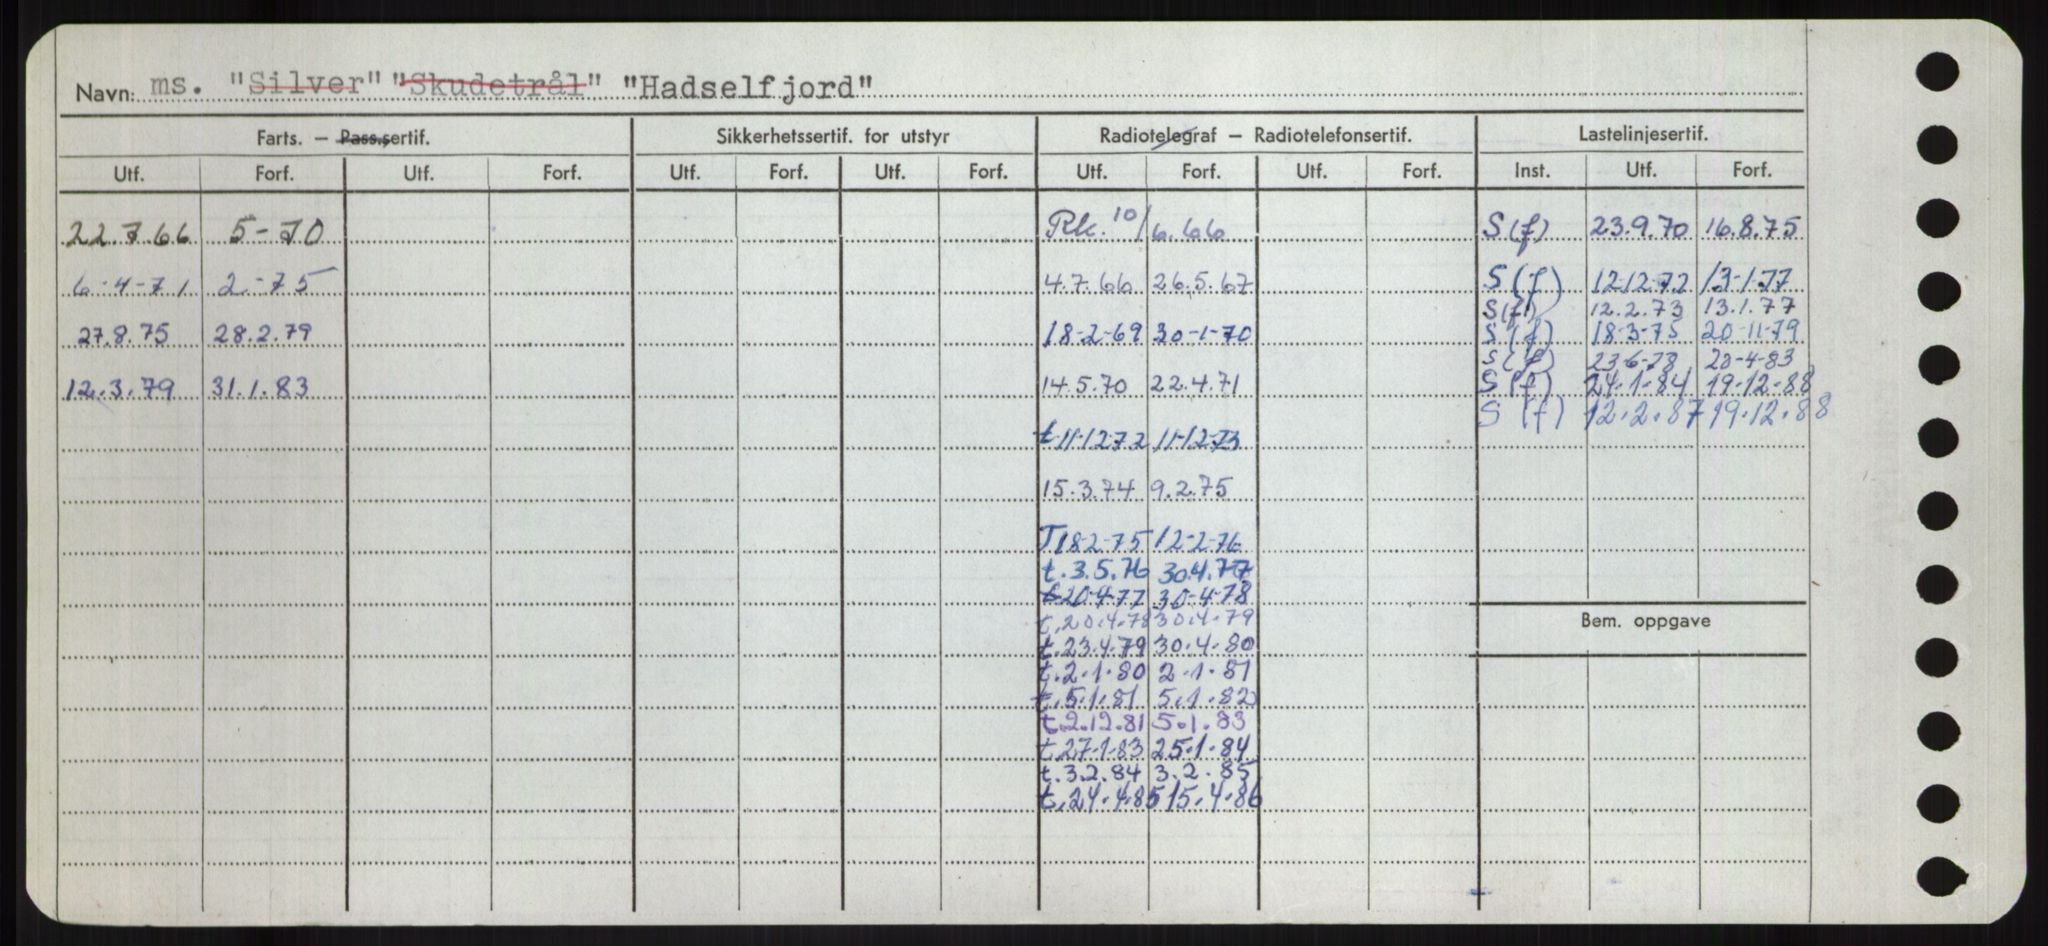 Navn: ms. "Silver" "Skudetrål" "Hadselfjord"
Farts. — Pass.sertif. Sikkerhetssertif. for utstyr Radiotelegraf — Radiotelefonsertif. Lastelinjesertif.
Utf. Forf. Utf. Forf. Utf. Forf. Utf. Forf. Utf. Forf. Utf. Forf. Inst. Utf. Forf.
22.7.66 5-70 Rk. 10/6.66 S(f) 23.9.70 16.8.75
6-4-71 2-75 4.7.66 26.5.67 S(f) 12.12.72 13-1-77
S(f) 12.2.73 13.1.77
27.8.75 28.2.79 18-2-69 30-1-70 S(f) 18-3-75 20-11-79
S(f) 23-6-78 20-4-83
12.3.79 31.1.83 14.5.70 22.4.71 S(f) 24.1.84 19.12.88
S(f) 12.2.87 19.12.88
t 11-12-72 11-12-73
15.3.74 9.2.75
T 18-2-75 12-2-76
t. 3.5.76 30.4.77
t 20-4-77 30-4-78
t. 20.4.78 30.4.79
t. 23.4.79 30.4.80
t. 2.1.80 2.1.81
t. 5.1.81 5.1.82
t. 2.12.81 5.1.83
t. 27.1.83 25.1.84
t. 3.2.84 3.2.85
t. 24.4.85 15.4.86
Bem. oppgave